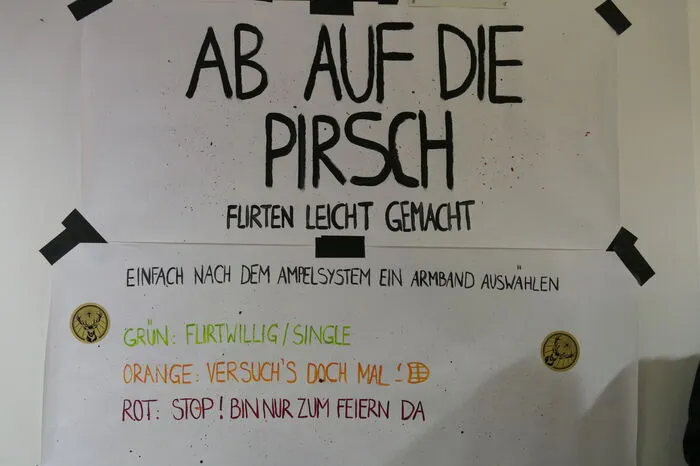 AB AUF DIE
PIRSCH
FLIRTEN LEICHT GEMACHT
EINFACH NACH DEM AMPELSYSTEM EIN ARMBAND AUSWÄHLEN
GRÜN: FLIRTWILLIG/SINGLE
ORANGE: VERSUCH'S DOCH MAL!
ROT: STOP! BIN NUR ZUM FEIERN DA